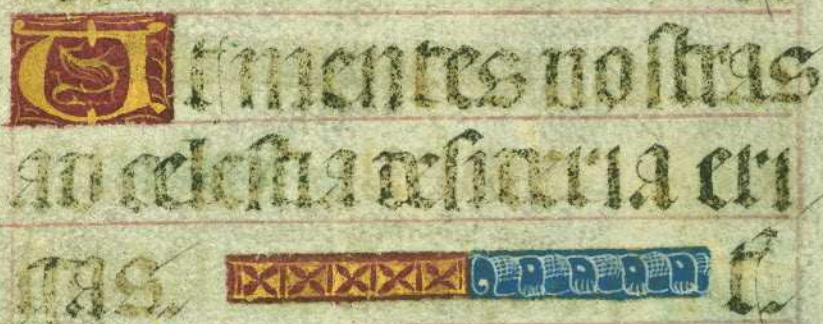 Ut mentes nostras
ad celestia desideria eri
gas. t̃